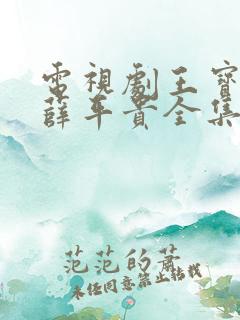 電視劇王寶
薛平貴全集
范范的蕭
未经同意禁止转载